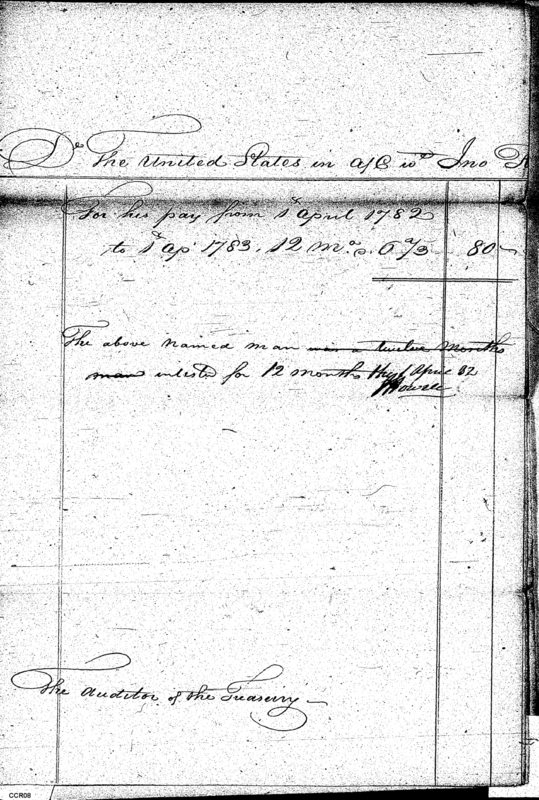 Dr The United States in a/C wth Jno
For his pay from 1st April 1782
to 1st Ap 1783. 12 Mos. 6 2/3 80
The above named man was a twelve months
man inlistd for 12 months April 82
Howell
The Auditor of the Treasury
CCR08